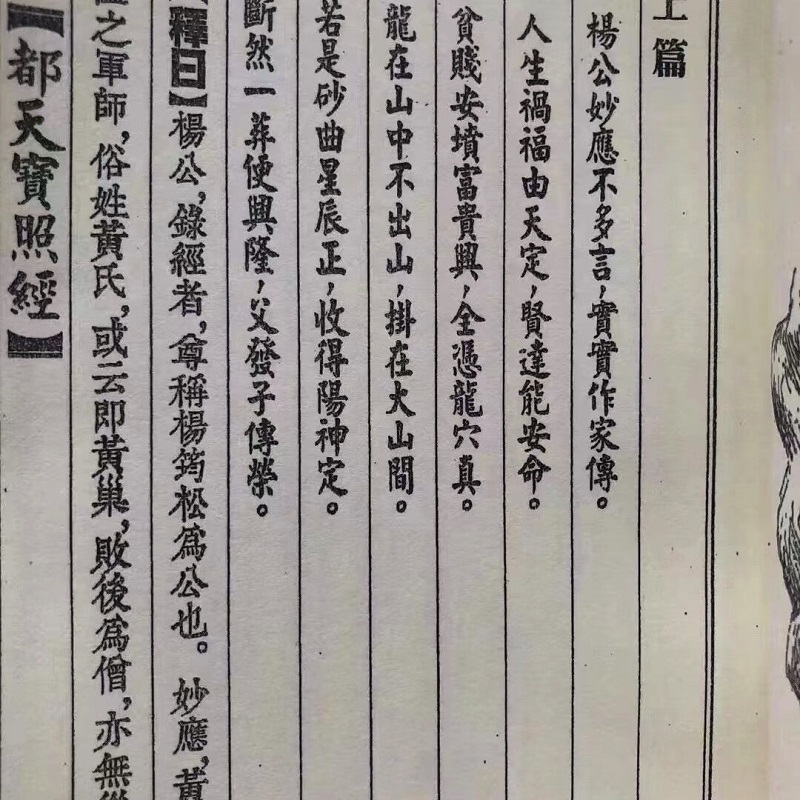 上篇
楊公妙應不多言，實實作家傳。
人生禍福由天定，賢達能安命。
貧賤安墳富貴興，全憑龍穴真。
龍在山中不出山，掛在大山間。
若是砂曲星辰正，收得陽神定。
斷然一葬便興隆，父發子傳榮。
【釋曰】楊公，錄經者，尊稱楊筠松為公也。妙應，黃
之軍師，俗姓黃氏，或云即黃巢，敗後為僧，亦無
【都天寶照經】